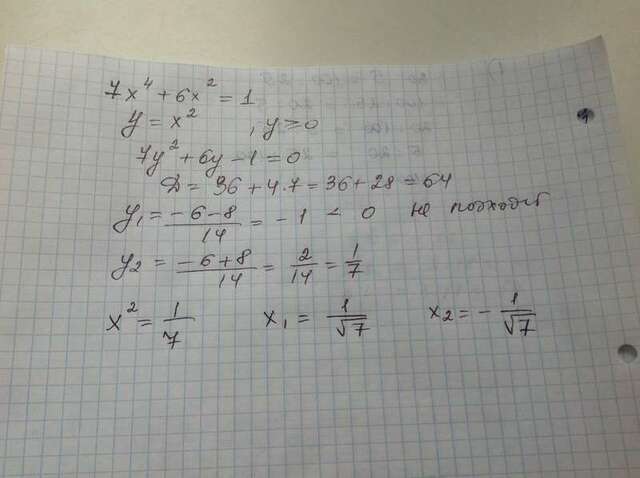 7x⁴ + 6x² = 1
y = x² , y ≥ 0
7y² + 6y - 1 = 0
D = 36 + 4·7 = 36 + 28 = 64
y₁ = (-6-8)/14 = -1 < 0 не подходит
y₂ = (-6+8)/14 = 2/14 = 1/7
x² = 1/7 x₁ = 1/√7 x₂ = - 1/√7